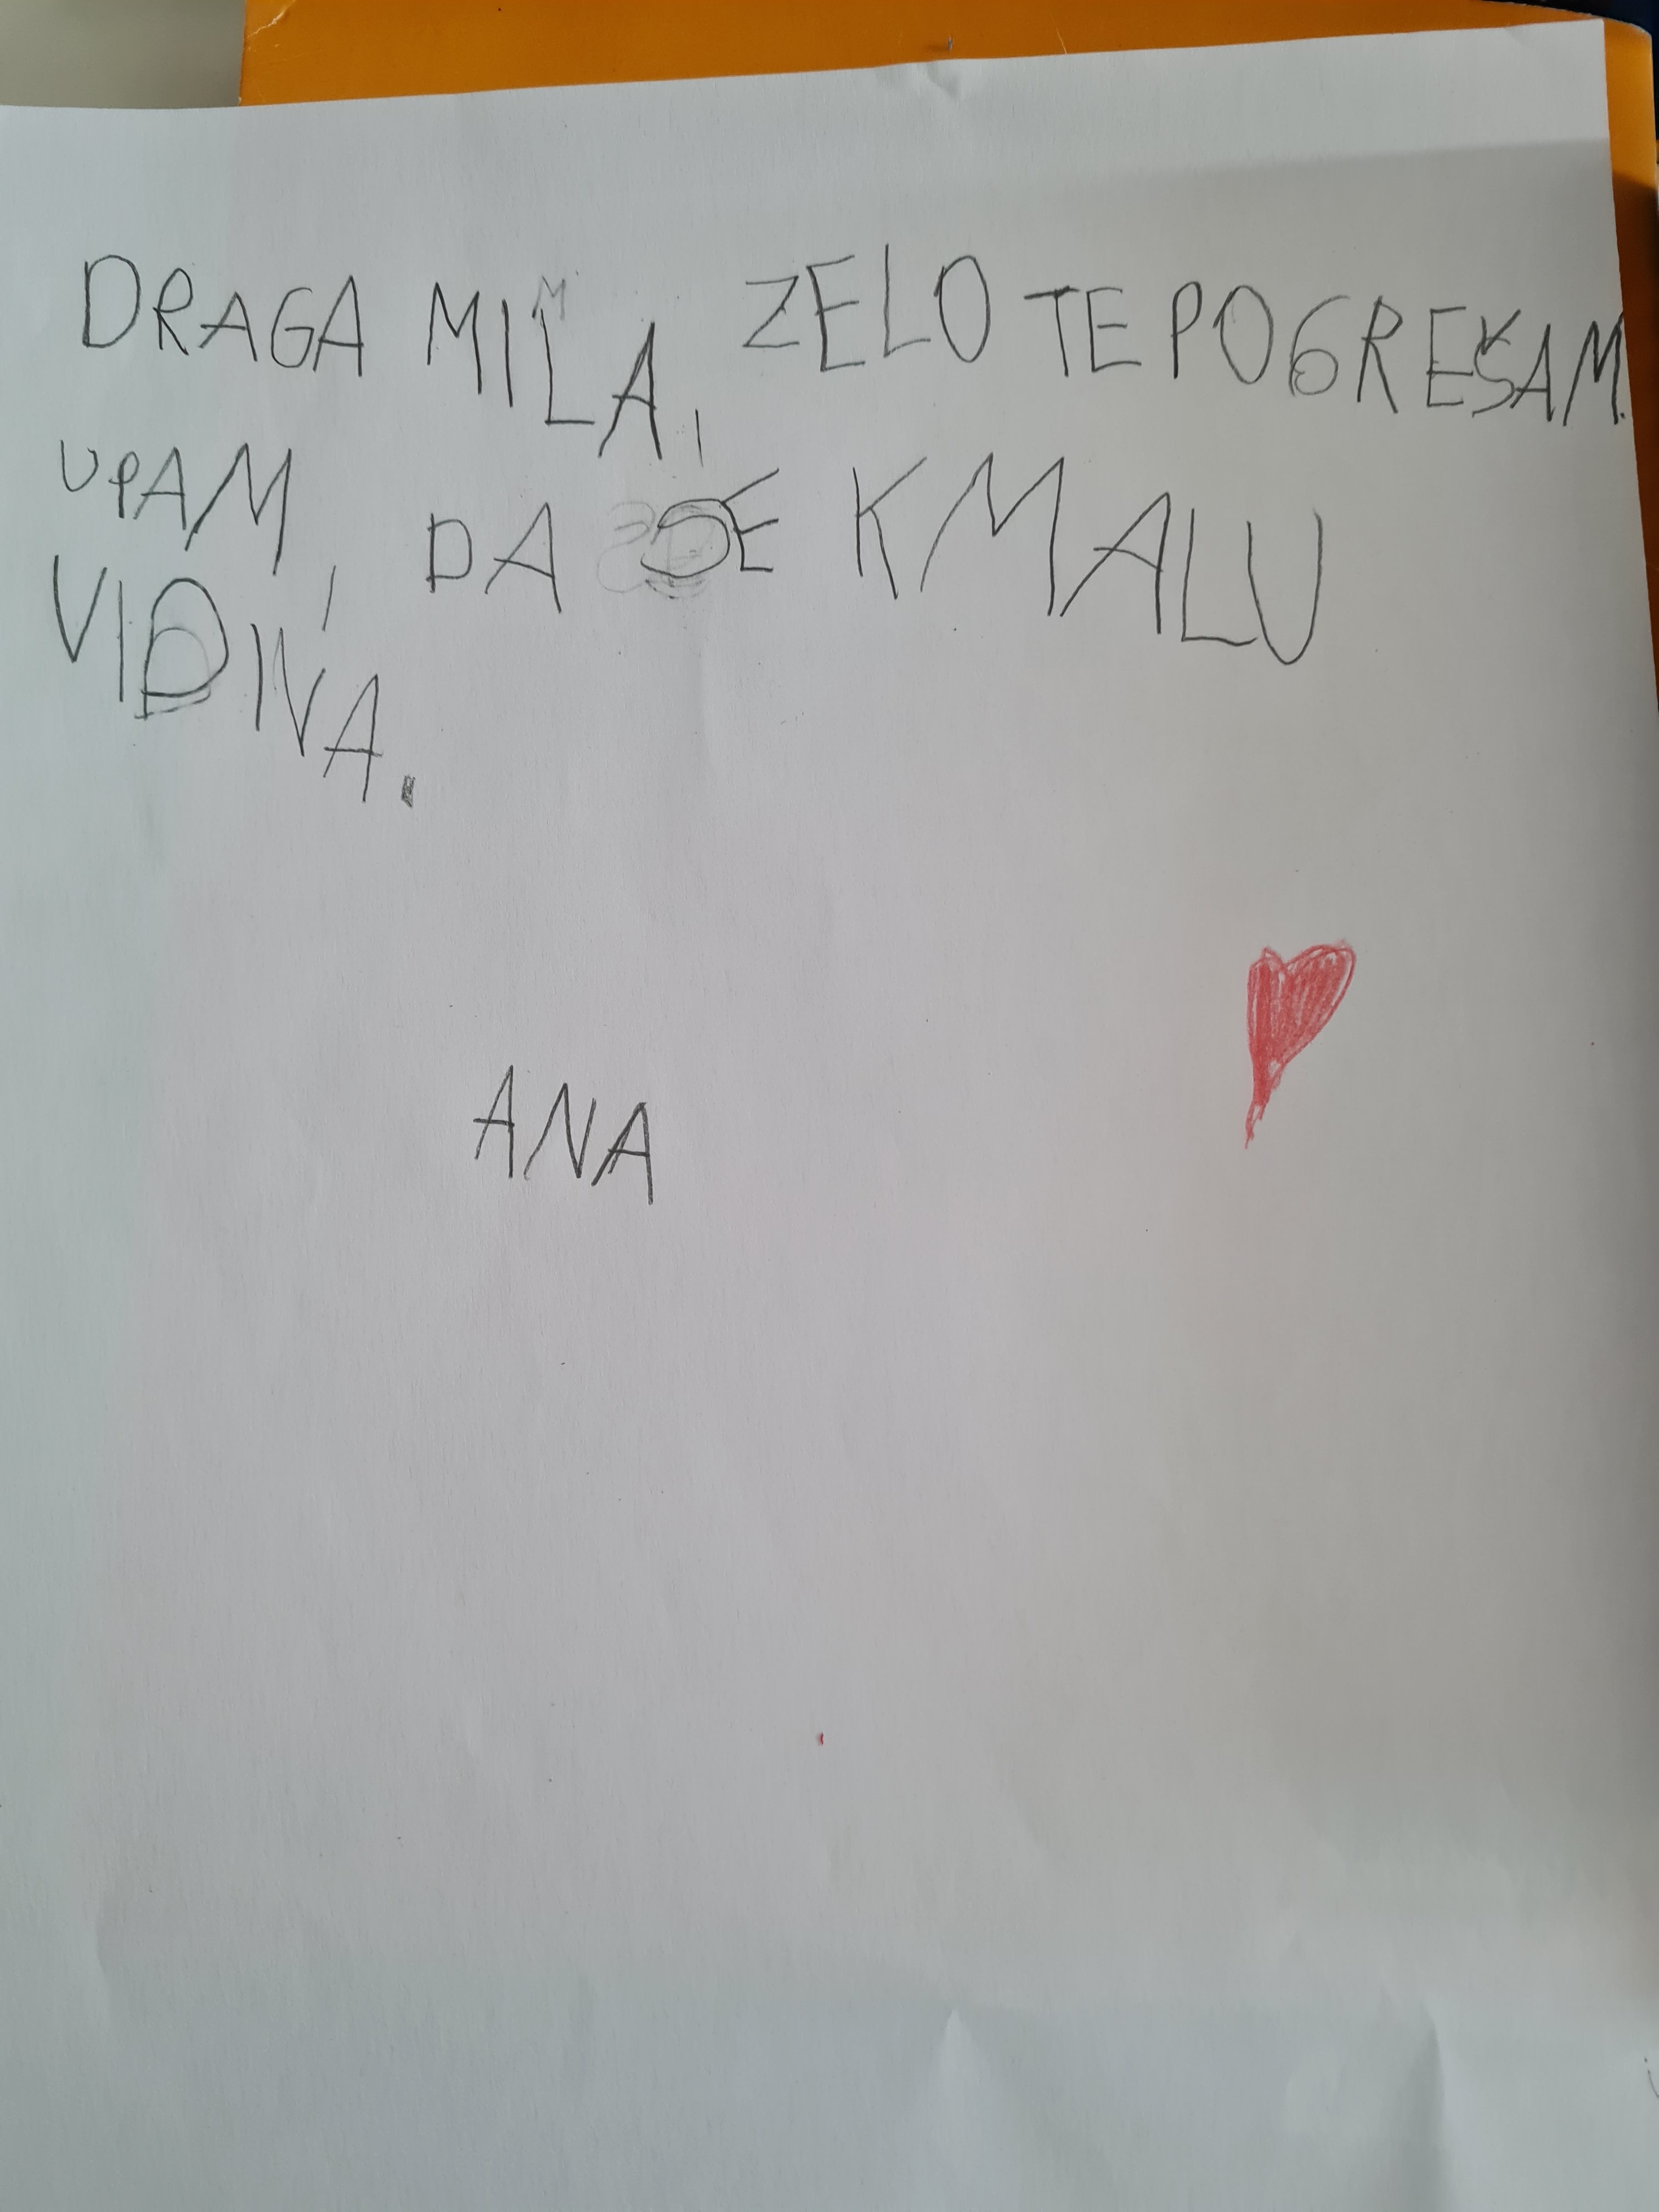 DRAGA MILA, ZELO TE POGREŠAM.
UPAM, DA SE KMALU
VIDIVA.
ANA